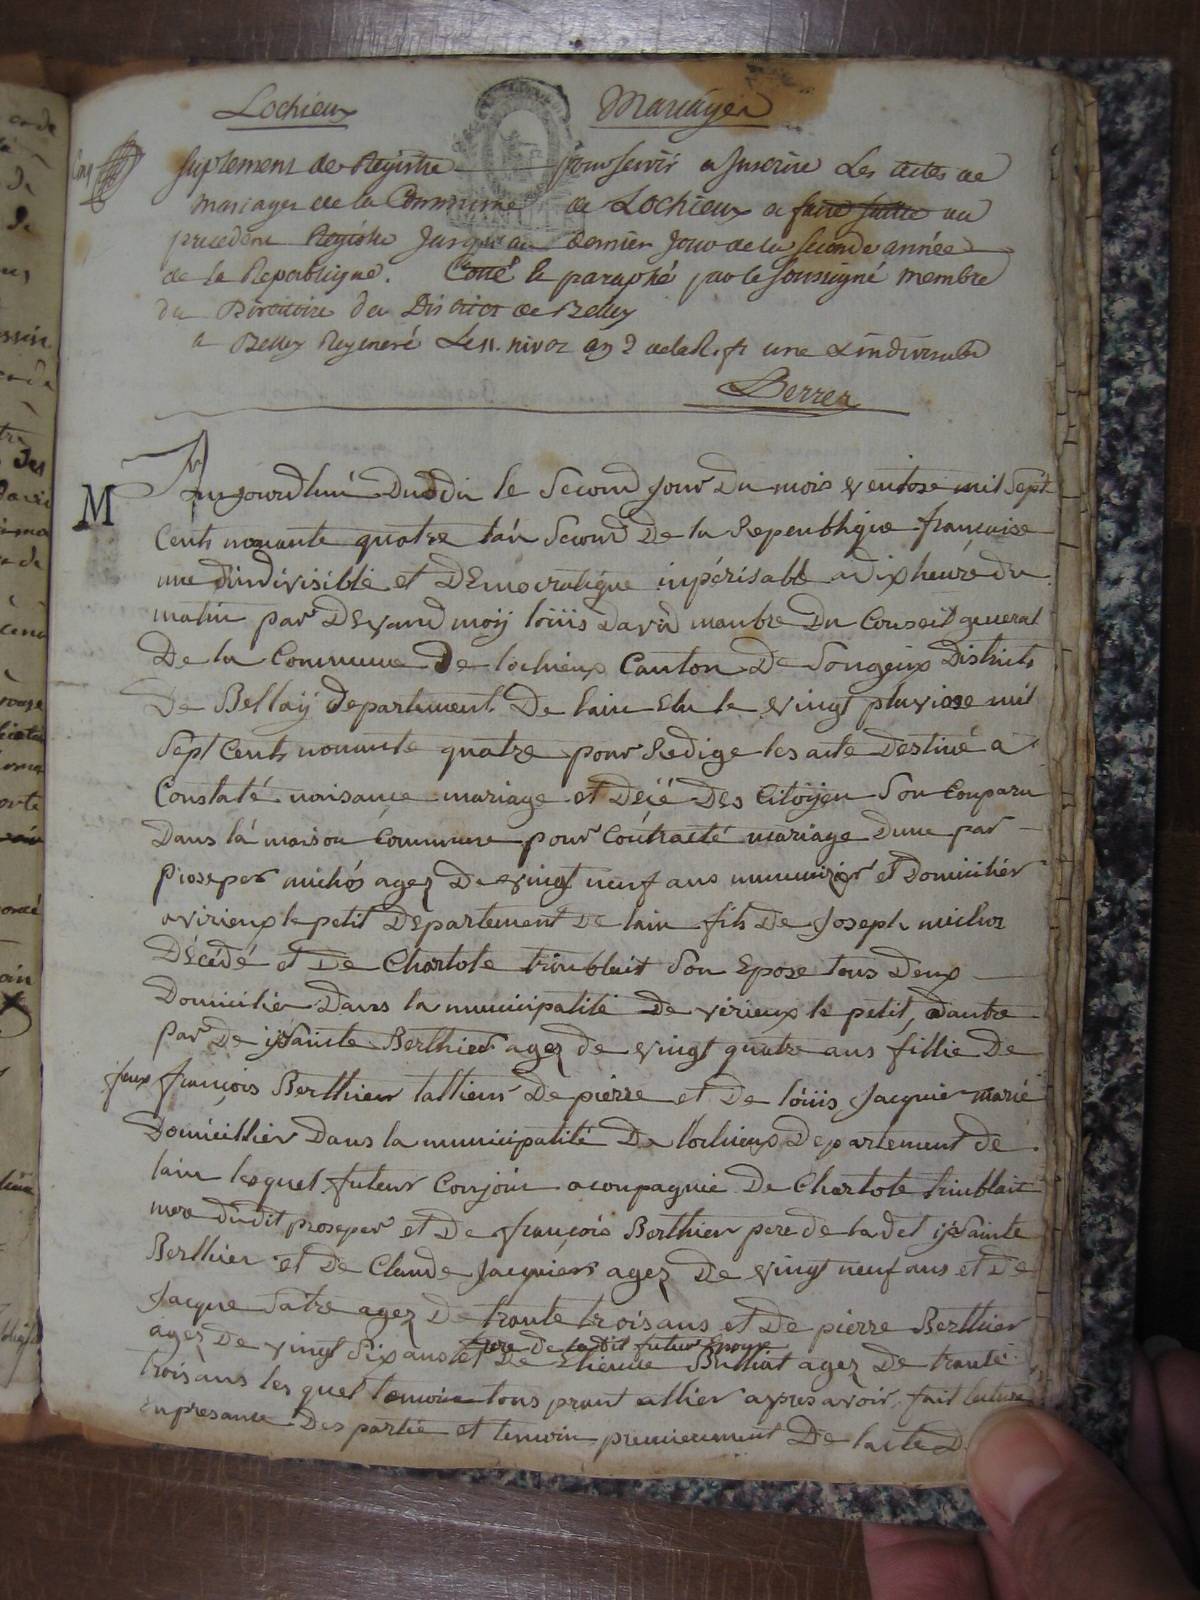 Lochieux Mariages
Suplement de Registre pour servir a Inscrire Les Actes de
Mariages de la Commune de Lochieux a faire suitte au
precedent Registre Jusqu'au dernier Jour de la seconde année
de la Republique. Coté & paraphé par le soussigné Membre
du Directoire du District de Belley
a Belley Regeneré Le 11. nivoz an 2 de la R. fr une & indivisible
Berrez
M
Aujourdhui Duodi le Second jour Du mois ventose mil sept
Cents nonante quatre lan Second De la Republique francaise
une Dindivisible et DEmocratique inpérisable a dix heure du
matin par DEvand moy loüis David manbre Du Conseil general
De la Commune De lochieux Canton De Songeux Districts
De Bellaÿ departement De lain Elu le vingt pluviose mil
Sept Cents nonante quatre pour Redige les acte Destiné a
Constaté naisance mariage et Décé Des Citoÿen Son Conparu
Dans la maison Commune pour Contracté mariage dune par
Proseper michos agez De vingt neuf ans et Domicilier
a virieux le petit DEpartement De lain fils De Joseph michoz
DÉcédé et De Chartote trinblait Son Epose tous Deux
Domicilier Dans la municipalité De virieux le petit, dautre
Par De Berthier agez de vingt quatre ans fillie De
feux françois Berthier tallieur De pierre et De loüis Jacquier marié
Domicillier Dans la municipalité De lochieux Departement de
lain lesquel futeur Conjoin aconpagnie De Chartote trinblait
mere dudit proseper et De françois Berthier pere de la dit
Berthier et De Claude Jacquier agez De vingt neuf ans et De
Jacque Satre agez De trante trois ans et De pierre Berthier
frere De la Dit futur Epouse
agez De vingt Six ans et De Etienne Brillat agez De trante
trois ans les quel temoin tous prant allier apres avoir fait lecture
En presance Des partie et temoin premierement De lacte D